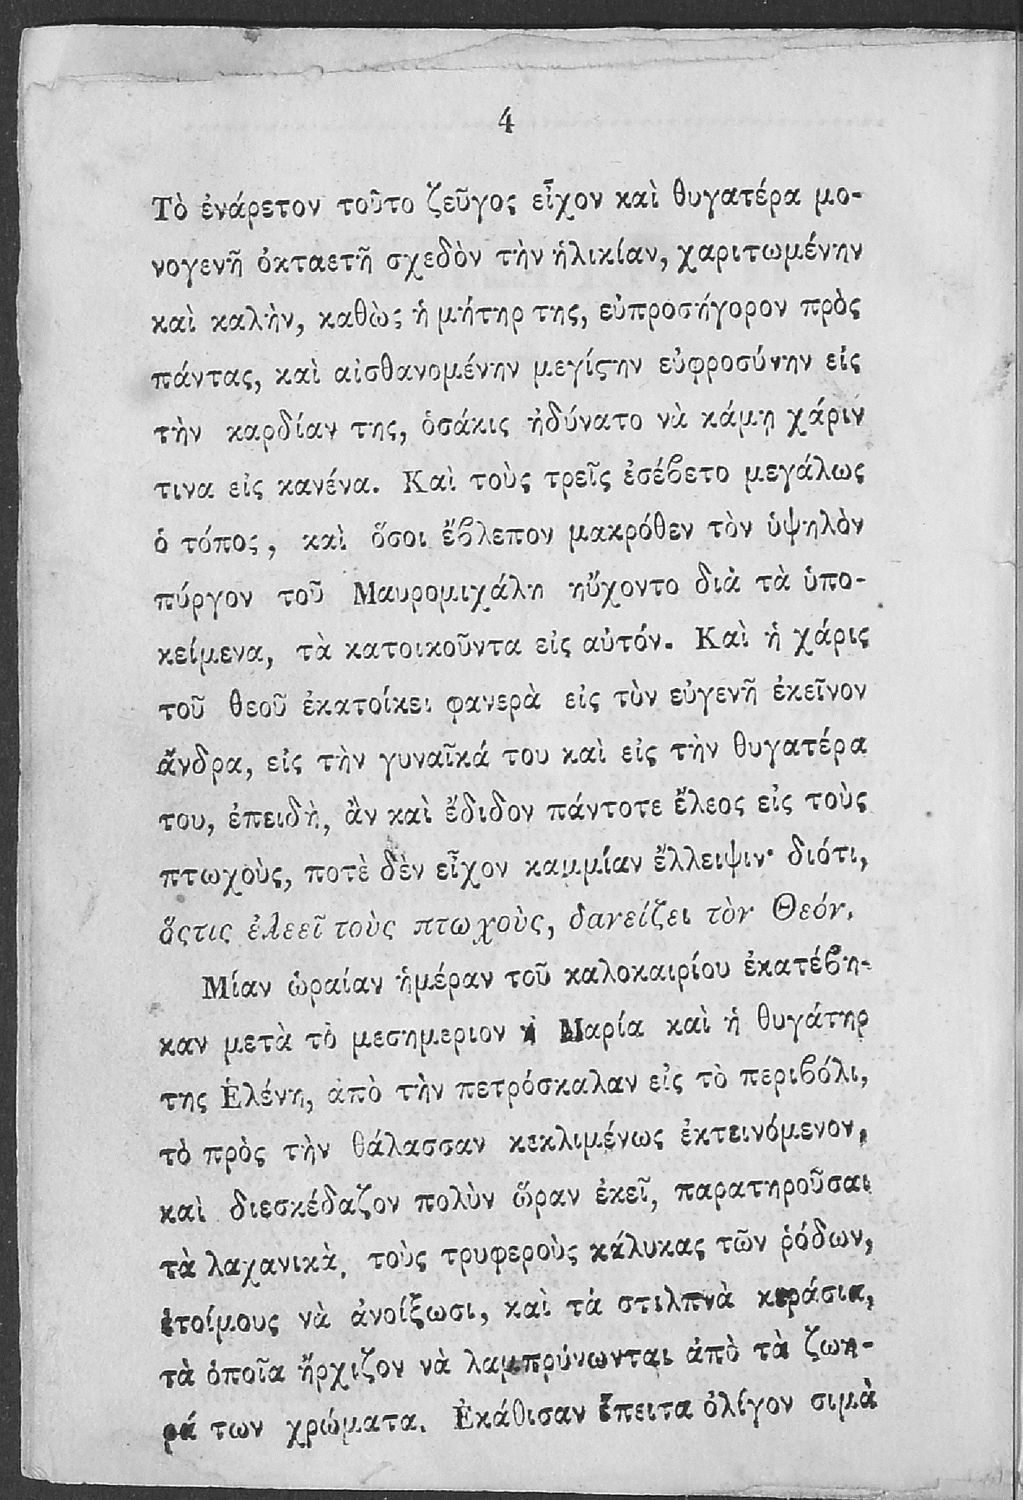 4
Τὸ ἐνάρετον τοῦτο ζεῦγος εἶχον καὶ θυγατέρα μο-
νογενῆ ὀκταετῆ σχεδὸν τὴν ἡλικίαν, χαριτωμένην
καὶ καλὴν, καθὼς ἡ μήτηρ της, εὐπροσήγορον πρὸς
πάντας, καὶ αἰσθανομένην μεγίϛην εὐφροσύνην εἰς
τὴν καρδίαν της, ὁσάκις ἠδύνατο νὰ κάμῃ χάριν
τινα εἰς κανένα. Καὶ τοὺς τρεῖς ἐσέϐετο μεγάλως
ὁ τόπος, καὶ ὅσοι ἔϐλεπον μακρόθεν τὸν ὑψηλὸν
πύργον τοῦ Μαυρομιχάλη ηὔχοντο διὰ τὰ ὑπο-
κείμενα, τὰ κατοικοῦντα εἰς αὐτόν. Καὶ ἡ χάρις
τοῦ θεοῦ ἐκατοίκει φανερὰ εἰς τὸν εὐγενῆ ἐκεῖνον
ἄνδρα, εἰς τὴν γυναῖκά του καὶ εἰς τὴν θυγατέρα
του, ἐπειδὴ, ἂν καὶ ἔδιδον πάντοτε ἔλεος εἰς τοὺς
πτωχοὺς, ποτὲ δὲν εἶχον καμμίαν ἔλλειψιν· διότι,
ὅςτις ἐλεεῖ τοὺς πτωχοὺς, δανείζει τὸν Θεόν.
Μίαν ὡραίαν ἡμέραν τοῦ καλοκαιρίου ἐκατέϐη-
καν μετὰ τὸ μεσημεριον ἡ Μαρία καὶ ἡ θυγάτηρ
της Ἑλένη, ἀπὸ τὴν πετρόσκαλαν εἰς τὸ περιϐόλι,
τὸ πρὸς τὴν θάλασσαν κεκλιμένως ἐκτεινόμενον,
καὶ διεσκέδαζον πολὺν ὥραν ἐκεῖ, παρατηροῦσαι
τὰ λαχανικὰ, τοὺς τρυφεροὺς κάλυκας τῶν ῥόδων,
ἑτοίμους νὰ ἀνοίξωσι, καὶ τὰ στιλπνὰ κεράσια,
τὰ ὁποῖα ἤρχιζον νὰ λαμπρύνωνται ἀπὸ τὰ ζωη-
ρά των χρώματα. Ἐκάθισαν ἔπειτα ὀλίγον σιμὰ